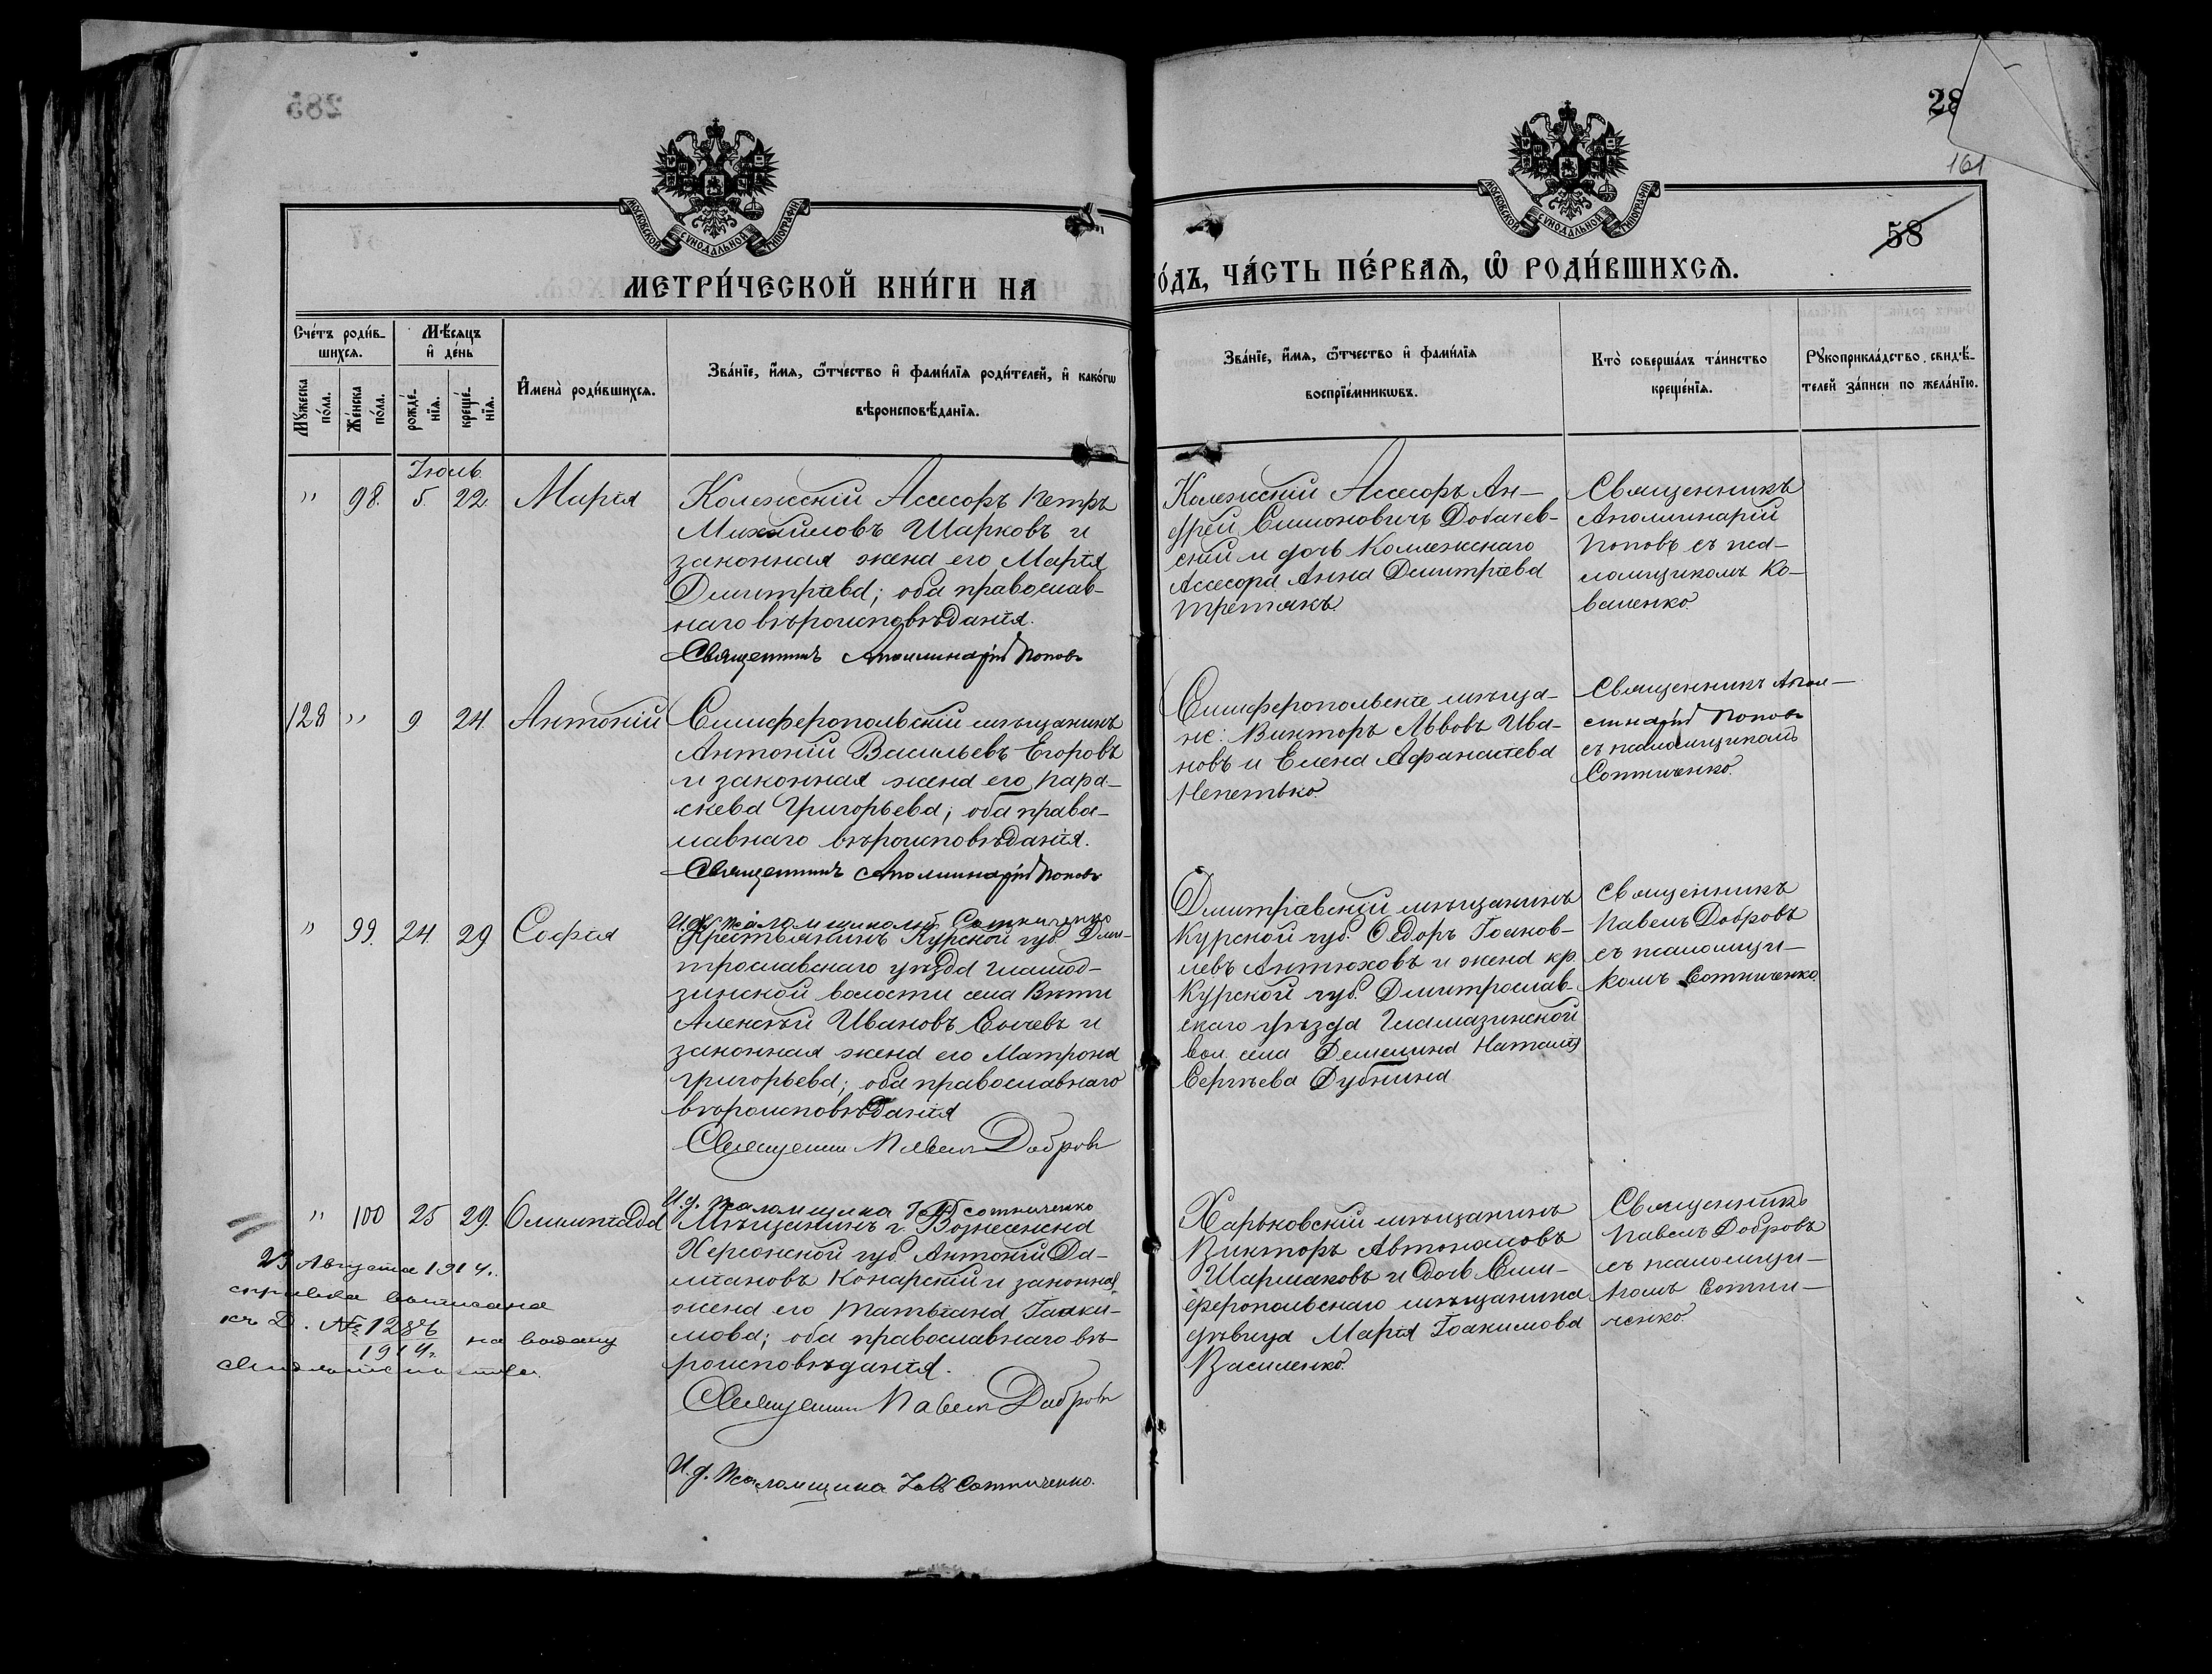 28
161
58
МОСКОВСКОЙ СУНОДАЛЬНОЙ ТИПОГРАФІИ
МОСКОВСКОЙ СУНОДАЛЬНОЙ ТИПОГРАФІИ
МЕТРИ́ЧЕСКОЙ КНИ́ГИ НА
О́ДЪ, ЧА́СТЬ ПЕ́РВАѦ, Ѽ РОДИ́ВШИХСѦ.
Сче́тъ роди́в-
шихсѧ.
Мѣ́сѧцъ
и҆ де́нь
Мꙋ́жеска
по́ла.
Же́нска
по́ла.
рожде́-
нїѧ.
креще́-
нїѧ.
И҆мена̀ роди́вшихсѧ.
Зва́нїе, и҆́мѧ, ѻ҆́тчество и҆ фами́лїѧ роди́телей, и҆ како́гѡ
вѣроисповѣ́данїѧ.
Зва́нїе, и҆́мѧ, ѻ҆́тчество и҆ фами́лїѧ
воспрїе́мникѡвъ.
Кто̀ соверша́лъ та́инство
креще́нїѧ.
Рꙋкоприкла́дство свидѣ́-
телей за́писи по жела́нїю.
Іюль
" 98. 5. 22. Марія
Колежскій Ассесоръ Петръ
Михайловъ Шарковъ и
законная жена его Марія
Димитріева; оба православ-
наго вѣроисповѣданія.
Священникъ Аполлинарій Поповъ
Колежскій Ассесоръ Ан-
дрей Симоновичъ Добачев-
скій и дочь Коллежскаго
Ассесора Анна Димитріева
Третьякъ.
Священникъ
Аполлинарій
Поповъ съ пса-
ломщикомъ Ко-
валенко.
128 " 9 24. Антоній
Симферопольскій мѣщанинъ
Антоній Васильевъ Егоровъ
и законная жена его Пара-
скева Григорьева; оба право-
славнаго вѣроисповѣданія.
Священникъ Аполлинарій Поповъ
И. д. псаломщика Сотниченко
Симферопольскіе мѣща-
не: Викторъ Львовъ Ива-
новъ и Елена Афанасіева
Непетько.
Священникъ Апол-
линарій Поповъ
съ псаломщикомъ
Сотниченко.
" 99. 24. 29 Софія
Крестьянинъ Курской губ. Дми-
трославскаго уѣзда Гламаз-
зинской волости села Вити
Алексѣй Ивановъ Сычевъ и
законная жена его Матрона
Григорьева; оба православнаго
вѣроисповѣданія
Священникъ Павелъ Добровъ
И. д. псаломщика Іак. Сотниченко
Димитріевскій мѣщанинъ
Курской губ. Ѳедоръ Іоанов-
левъ Антюховъ и жена кр.
Курской губ. Димитрослав-
скаго уѣзда Гламазинской
вол. села Демешина Наталія
Сергѣева Дубинина
Священникъ
Павелъ Добровъ
съ псаломщи-
комъ Сотниченко.
" 100 25 29. Олимпіада
Мѣщанинъ г. Вознесенска
Херсонской губ. Антоній Да-
міановъ Конарскій и законная
жена его Татьяна Іоаки-
мова; оба православнаго вѣ-
роисповѣданія.
Священникъ Павелъ Добровъ
И. д. Псаломщика Іак. Сотниченко.
Харьковскій мѣщанинъ
Викторъ Автономовъ
Шармаковъ и дочь Сим-
феропольскаго мѣщанина
дѣвица Марія Іоакимова
Василенко.
Священникъ
Павелъ Добровъ
съ псаломщи-
комъ Сотни-
ченко.
23 Августа 1914 г.
справка выписана
къ Д. № 1284
1914 г. на выдачу
свидѣтельства.